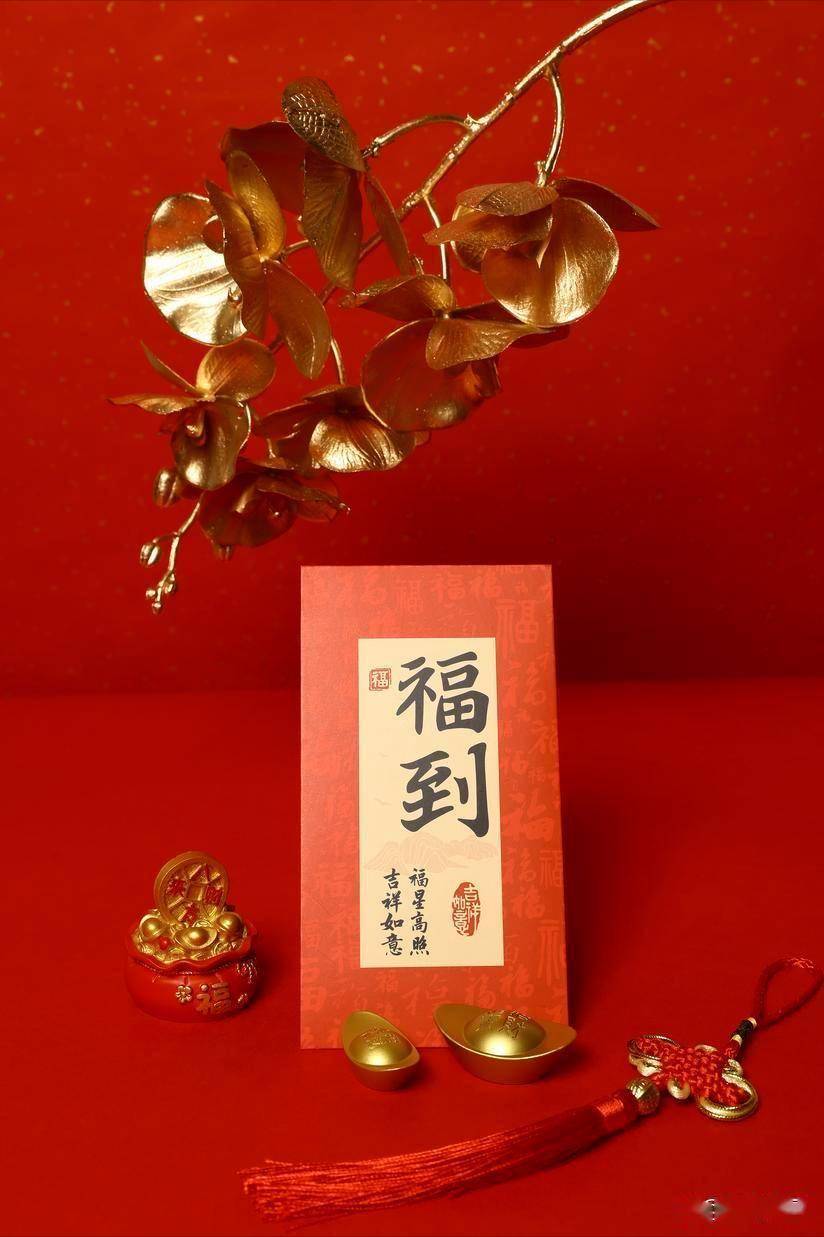 福
福到
福星高照
吉祥如意
吉祥如意
福